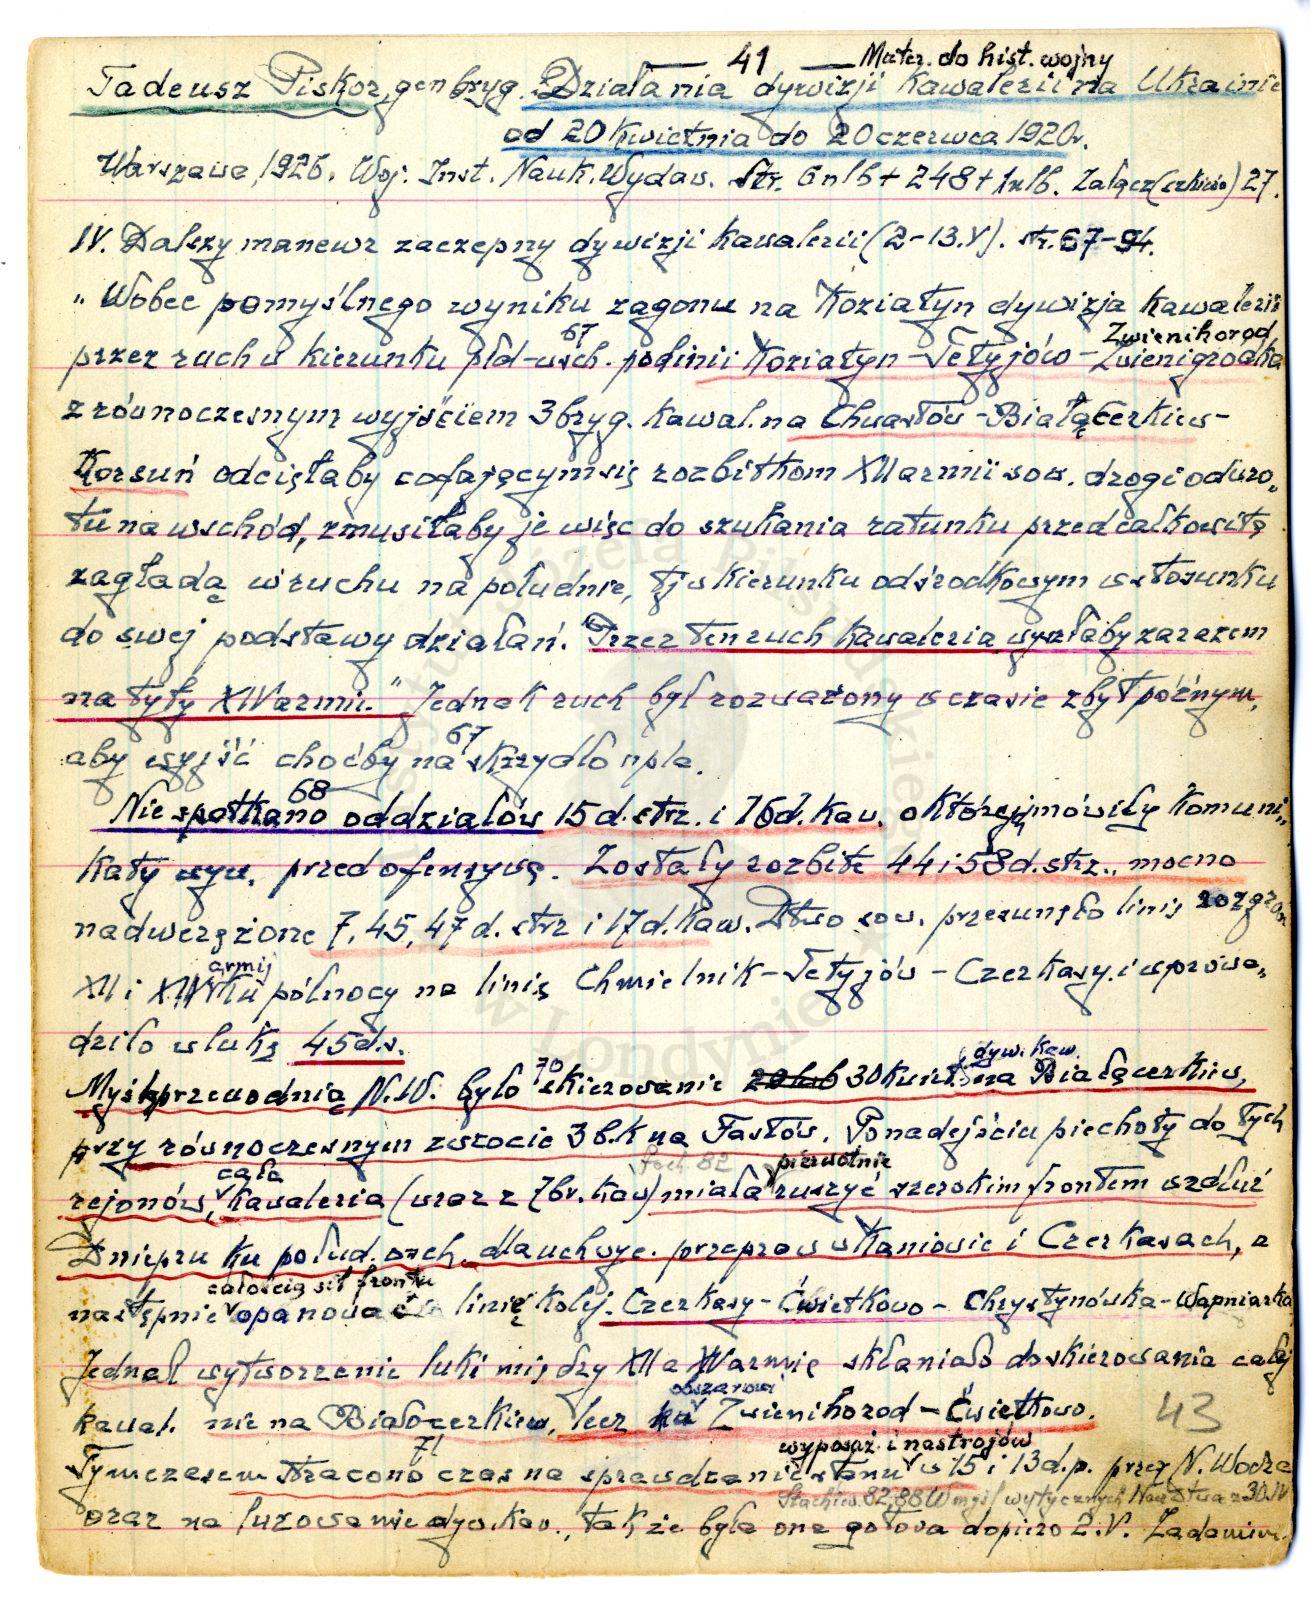 — 41 — Mater. do hist. wojny
Tadeusz Piskor, gen bryg. Działania dywizji Kawalerii na Ukrainie
od 20 Kwietnia do 20 czerwca 1920r.
Warszawa, 1926. Woj. Inst. Nauk. Wydaw. Str. 6 nlb + 248 + 1 nlb. Załącz (szkiców) 27.
IV. Dalszy manewr zaczepny dywizji Kawalerii (2-13.V). str. 67-94.
„Wobec pomyślnego wyniku zagonu na Koziatyn dywizja Kawalerii
67 Zwienihorod
przez ruch w kierunku płd-wsch. po linii Koziatyn - Tetyjów - Zwienigrodka
z równoczesnym wyjściem 3 bryg. Kawal. na Chwastów - Białącerkiew -
Korsuń odcięłaby cofającym się rozbitkom XII armii sow. drogi odwro„
tu na wschód, zmusiłaby je więc do szukania ratunku przed całkowitą
zagładą w ruchu na południe, tj w kierunku odśrodkowym w stosunku
do swej podstawy działań. Przez ten ruch Kawaleria wyszłaby zarazem
na tyły XIV armii." Jednak ruch był rozważony w czasie zbyt późnym,
67
aby wyjść choćby na skrzydło npla.
68
Nie spotkano oddziałów 15 d. strz. i 16 d. kaw. o której mówiły Komuni„
katy wyw. przed ofensywą. Zostały rozbite 44 i 58 d. strz., mocno
nadwerężone 7, 45, 47 d. strz i 17 d. Kaw. Dtwo sow. przesunęło linię rozgran
armij
XII i XIV ku północy na linię Chmielnik - Tetyjów - Czerkasy i wprowa„
dziło w lukę 45 d.s.
70 dyw. kaw.
Myślą przewodnią N.W. było skierowanie 30 kwiet. na Białącerkiew,
przy równoczesnym zwrocie 3 b.K na Fastów. Po nadejściu piechoty do tych
cała 82 pierwotnie
rejonów, Kawaleria (wraz z 7 br. Kaw) miała ruszyć szerokim frontem wzdłuż
Dniepru ku połud. wsch. dla uchwyc. przepraw w Kaniowie i Czerkasach, a
całością sił frontu
następnie opanować linię kolej. Czerkasy - Ćwietkowo - Chrystynówka - Wapniarka
Jednak wytworzenie luki między XII a XIV armią skłaniało do skierowania całej
obszarowi
kawal. nie na Białocerkiew, lecz ku Zwienihorod - Ćwietkowo. 43
71 wyposaż. i nastrojów
Tymczasem stracono czas na sprawdzanie stanu w 15 i 13 d.p. przez N. Wodza
Stachiew. 82, 88 W myśl wytycznych Nacz Dtwa z 30.IV
oraz na luzowanie dyw. kaw., tak że była ona gotowa dopiero 2.V. Zadaniem
Instytut Józefa Piłsudskiego
w Londynie